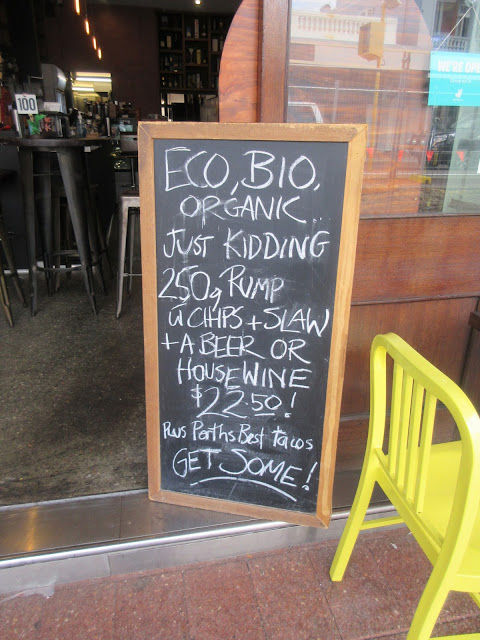 WE'RE OPEN
100
ECO, BIO,
ORGANIC
JUST KIDDING
250g RUMP
w CHIPS + SLAW
+ A BEER OR
HOUSE WINE
$22.50!
Plus Perths Best Tacos
GET SOME!